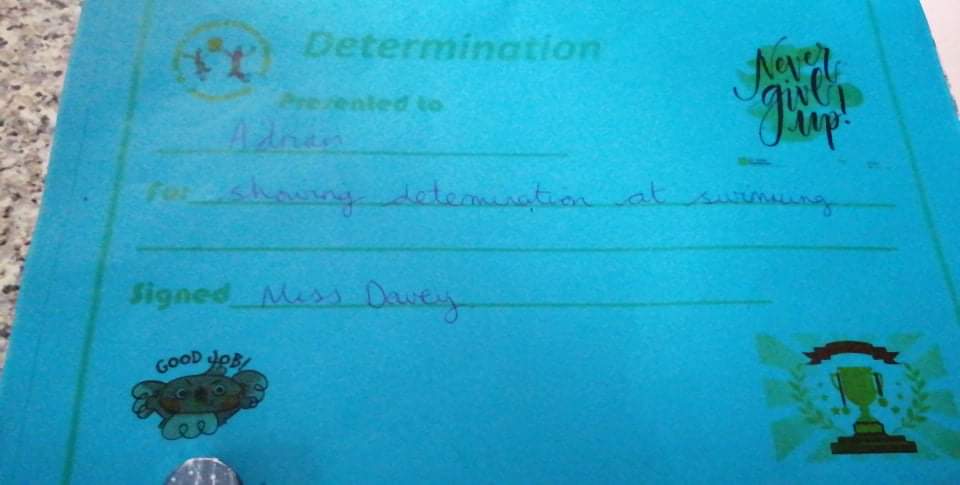 Determination
Never
give
up!
Presented to
Adrian
For showing detemination at swimming
Signed Miss Davey
GOOD JOB!